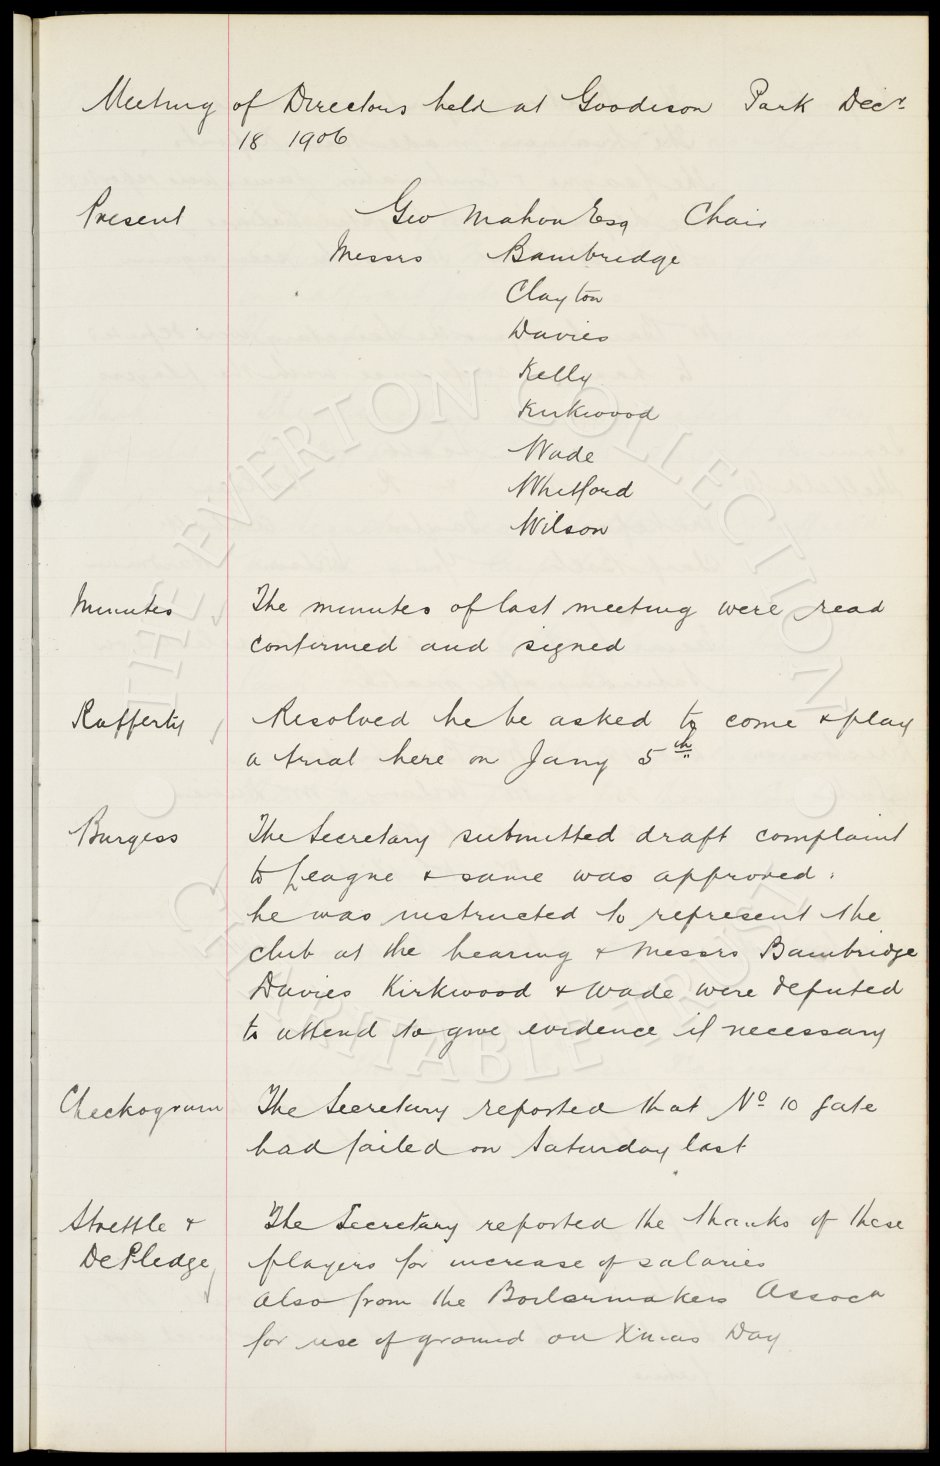 Meeting of Directors held at Goodison Park Decr
18 1906
Present Geo Mahon Esq Chair
Messrs Bainbridge
Clayton
Davies
Kelly
Kirkwood
Wade
Whitford
Wilson
Minutes The minutes of last meeting were read
confirmed and signed
Rafferty Resolved he be asked to come & play
a trial here on Jany 5th
Burgess The Secretary submitted draft complaint
to League & same was approved.
he was instructed to represent the
club at the hearing & Messrs Bainbridge
Davies Kirkwood & Wade were deputed
to attend to give evidence if necessary
Checkogram The Secretary reported that No 10 gate
had failed on Saturday last
Strettle & The Secretary reported the thanks of these
De Pledge players for increase of salaries
Also from the Boilermakers Assocn
for use of ground on Xmas Day
THE EVERTON COLLECTION
CHARITABLE TRUST